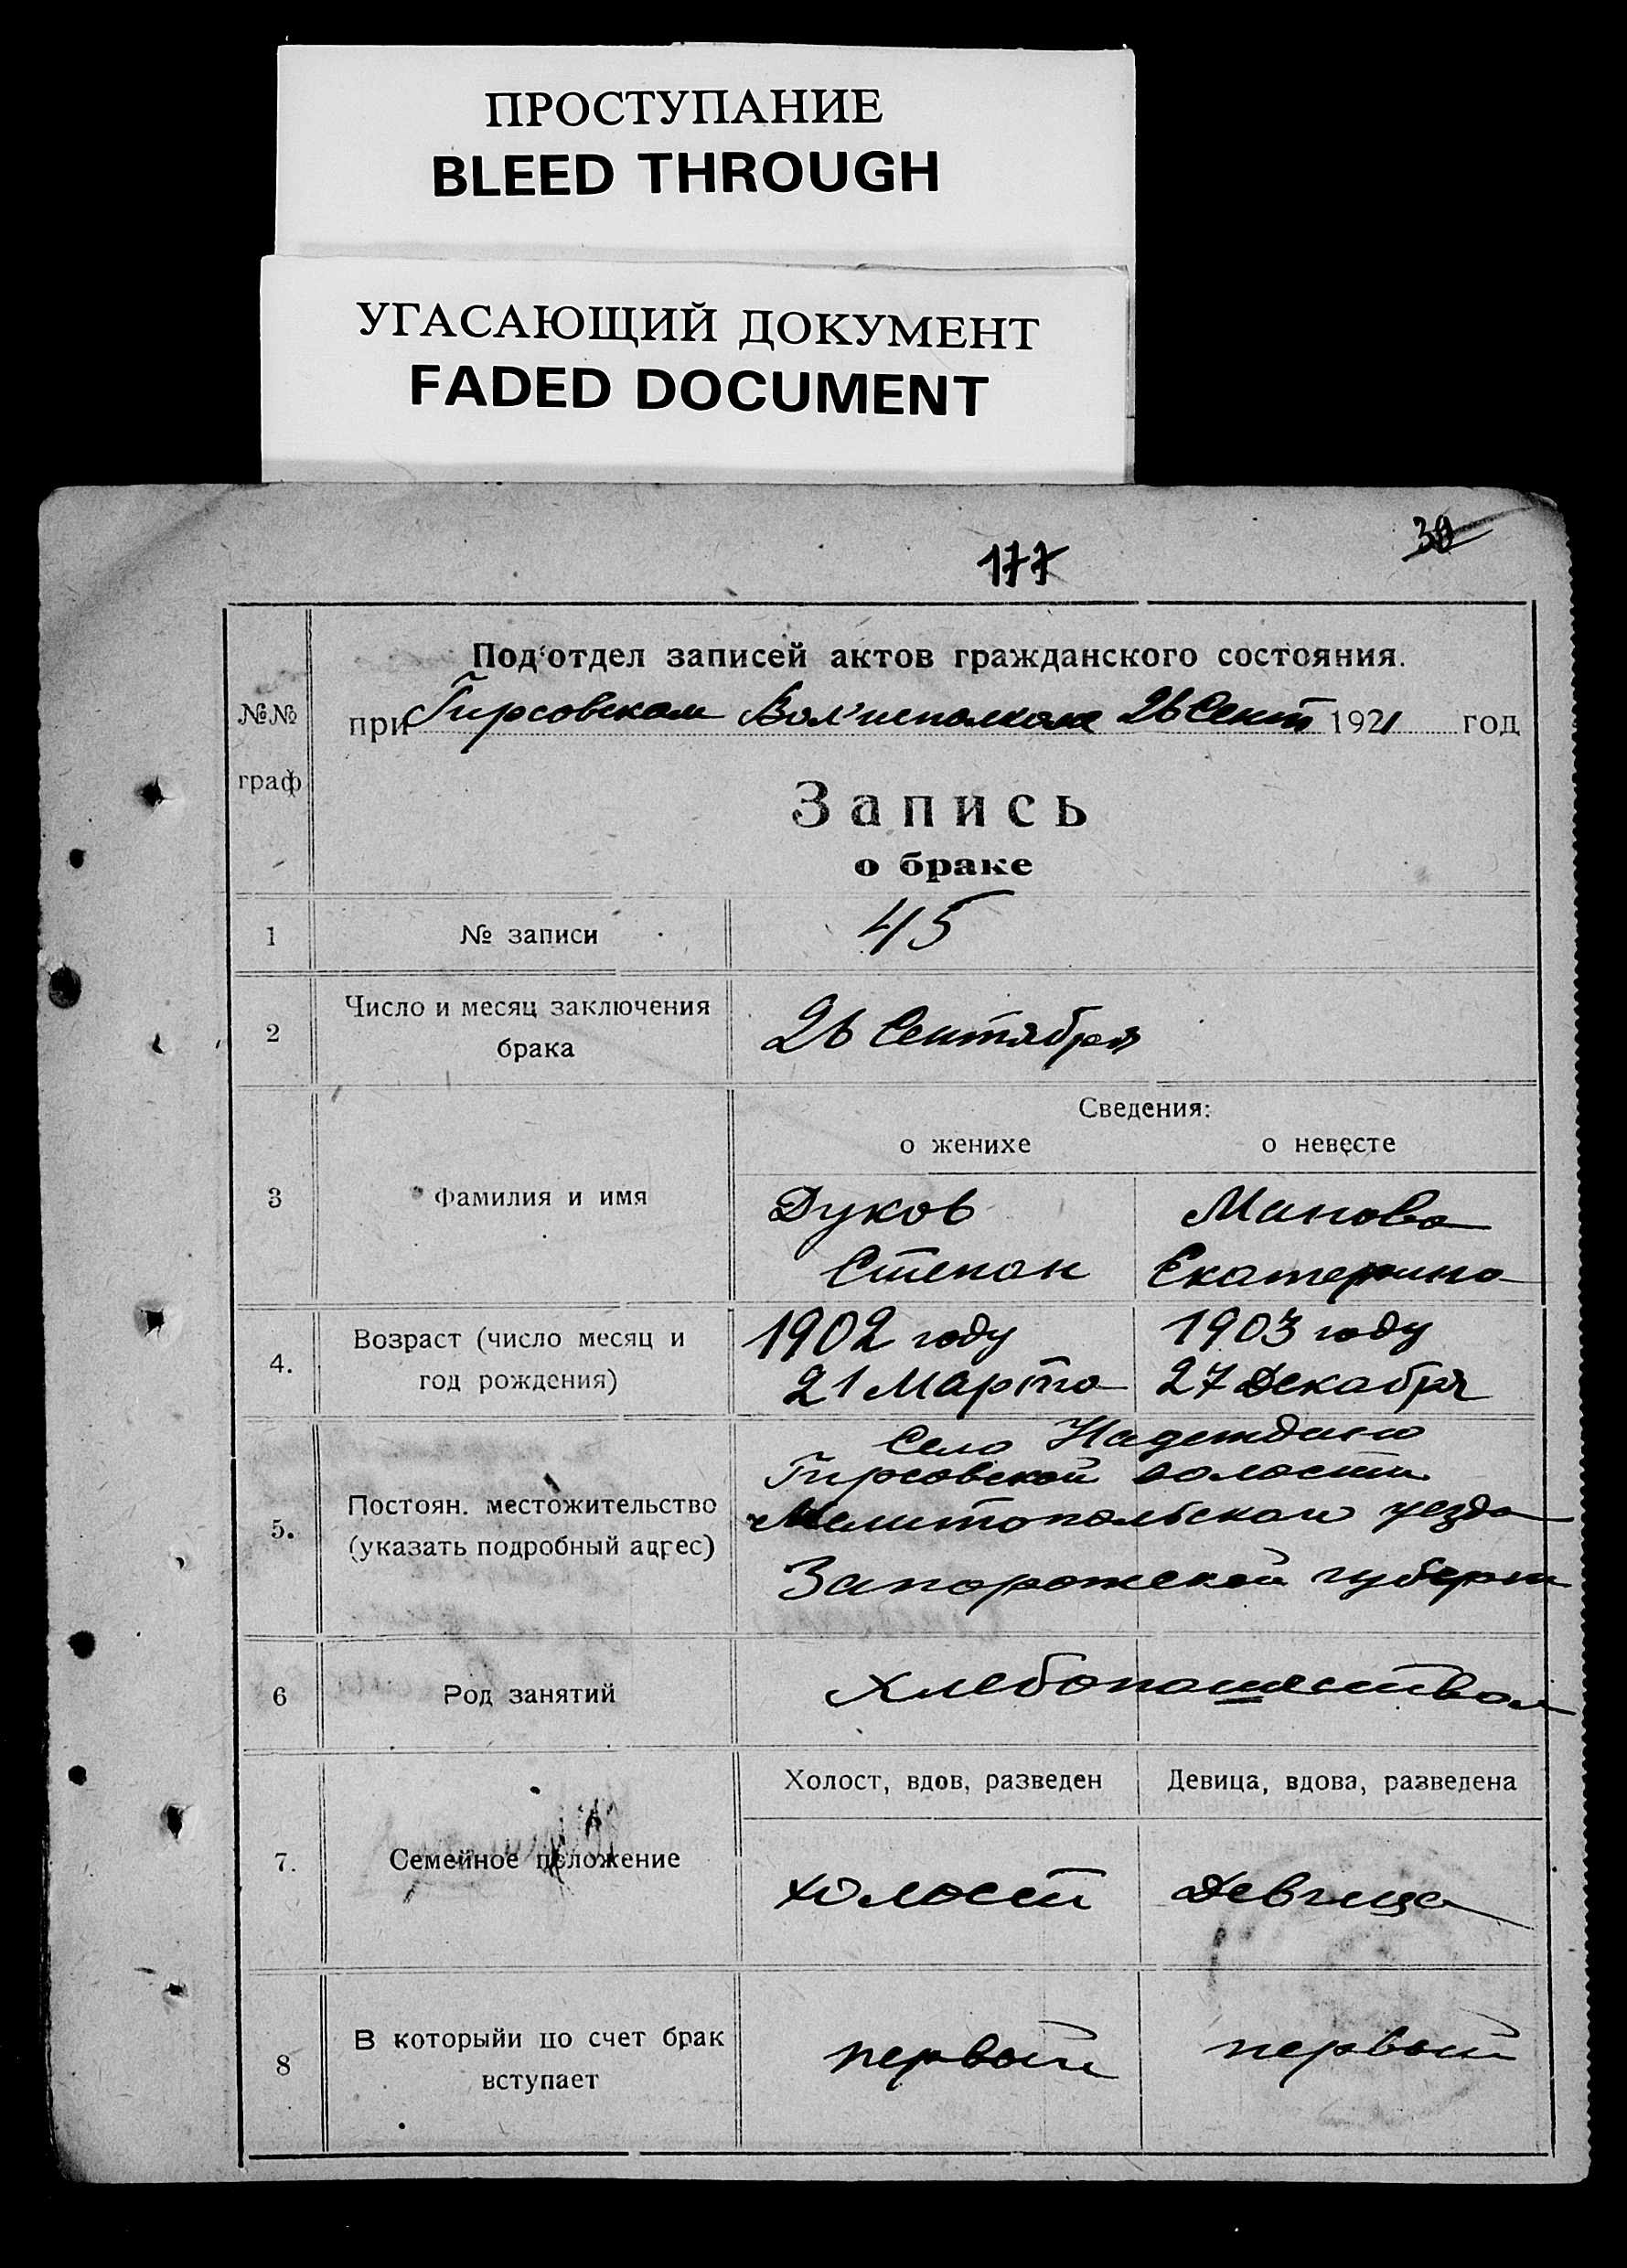 ПРОСТУПАНИЕ
BLEED THROUGH
УГАСАЮЩИЙ ДОКУМЕНТ
FADED DOCUMENT
30
177
Под'отдел записей актов гражданского состояния.
№№
при Гирсовском Вол'исполкоме 26 Сент 1921 год
граф
Запись
о браке
1 № записи 45
2 Число и месяц заключения
брака
26 Сентября
Сведения:
о женихе о невесте
3 Фамилия и имя
Дуков Манова
Степан Екатерина
4. Возраст (число месяц и
год рождения)
1902 году 1903 году
21 Марта 27 Декабря
5. Постоян. местожительство
(указать подробный адрес)
Село Надеждино
Гирсовской волости
Мелитопольскаи уезда
Запорожской губерни
6 Род занятий Хлебопашеством
Холост, вдов, разведен Девица, вдова, разведена
7. Семейное положение
холост Девица
8 В которыйи по счет брак
вступает
первый первый